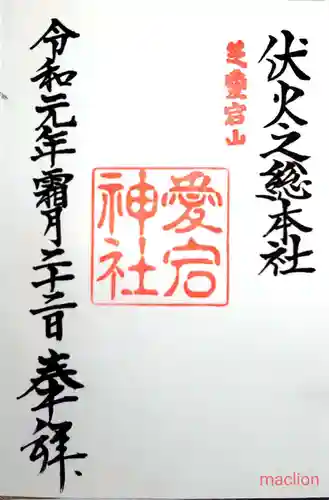 伏火之総本社
芝愛宕山
愛宕
神社
令和元年霜月二十二日 奉拝
maclion